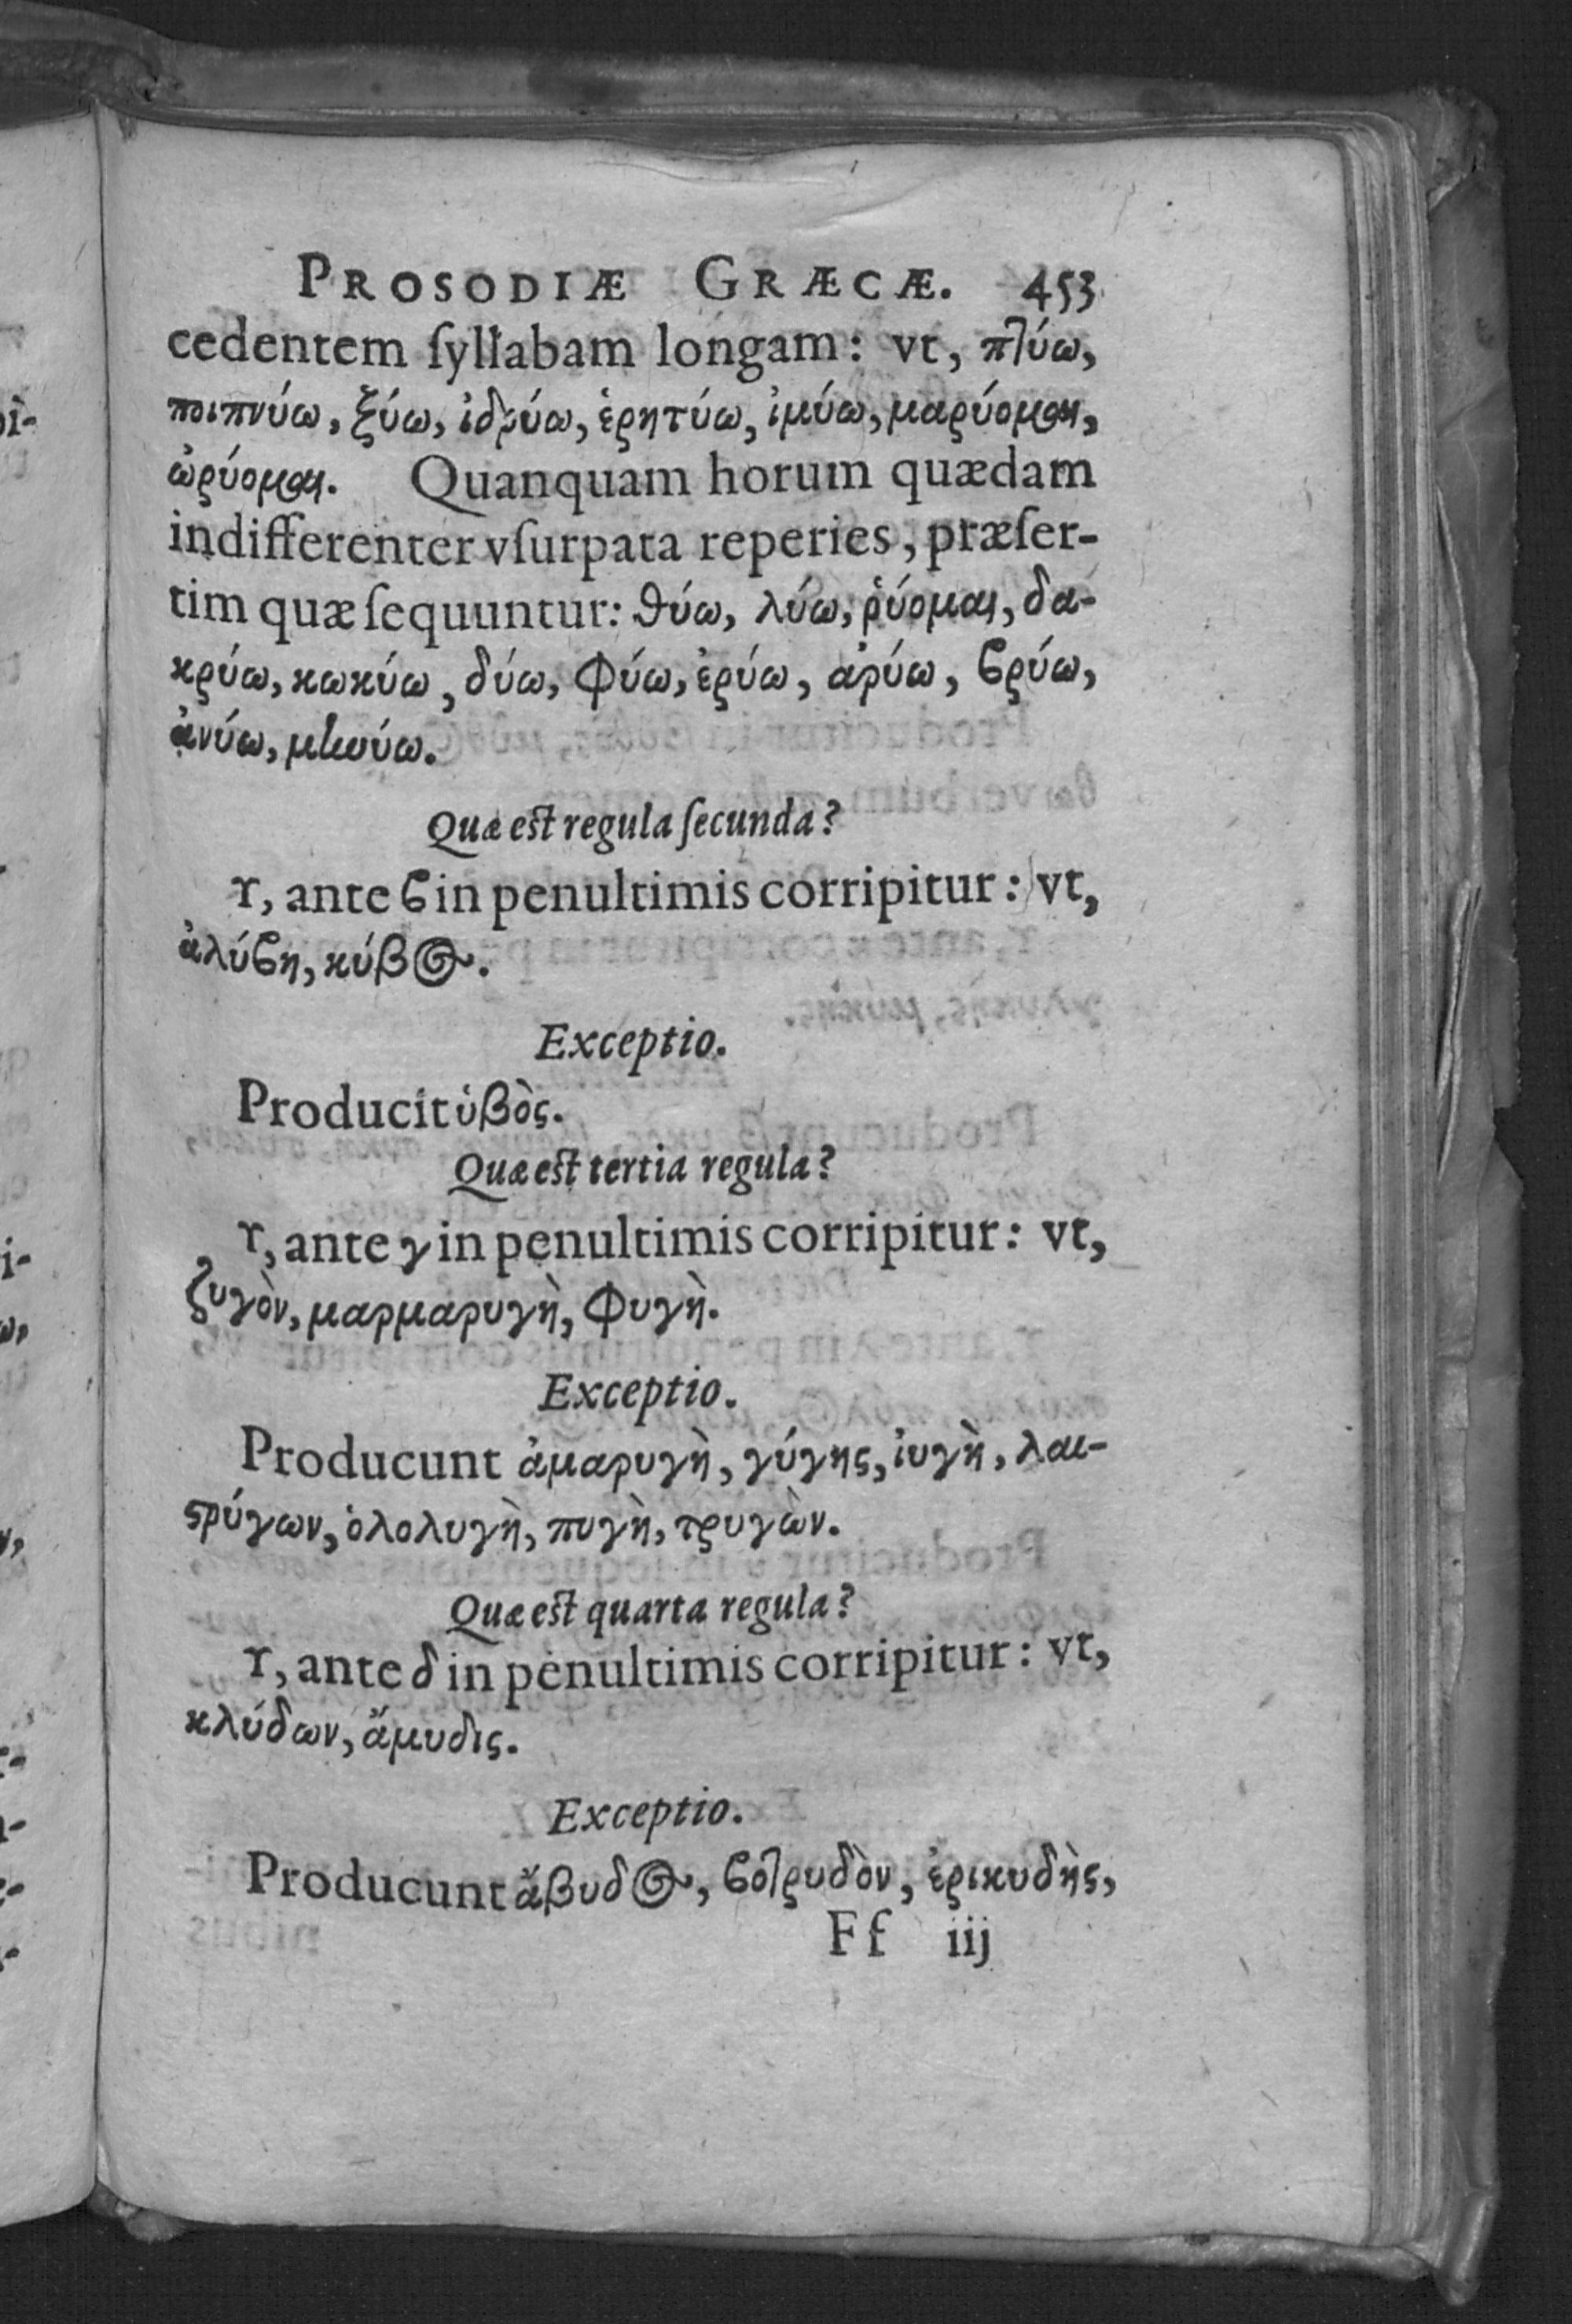 PROSODIÆ GRÆCÆ. 453
cedentem ſyllabam longam: vt, πτύω,
ποιπνύω, ξύω, ἱδρύω, ἐρητύω, ἰμύω, μαρύομαι,
ὠρύομαι. Quanquam horum quædam
indifferenter vſurpata reperies, præſer-
tim quæ ſequuntur: θύω, λύω, ῥύομαι, δα-
κρύω, κωκύω, δύω, φύω, ἐρύω, ἀρύω, ϐρύω,
ἀνύω, μηνύω.
Quæ est regula ſecunda?
Υ, ante ϐ in penultimis corripitur: vt,
ἀλύϐη, κύβος.
Exceptio.
Producit ὑβὸς.
Quæ est tertia regula?
Υ, ante γ in penultimis corripitur: vt,
ζυγὸν, μαρμαρυγὴ, φυγὴ.
Exceptio.
Producunt ἀμαρυγὴ, γύγης, ἰυγὴ, λαι-
ϛρύγων, ὀλολυγὴ, πυγὴ, τρυγὼν.
Quæ est quarta regula?
Υ, ante δ in penultimis corripitur: vt,
κλύδων, ἄμυδις.
Exceptio.
Producunt ἄβυδος, ϐοτρυδὸν, ἐρικυδὴς,
Ff iij